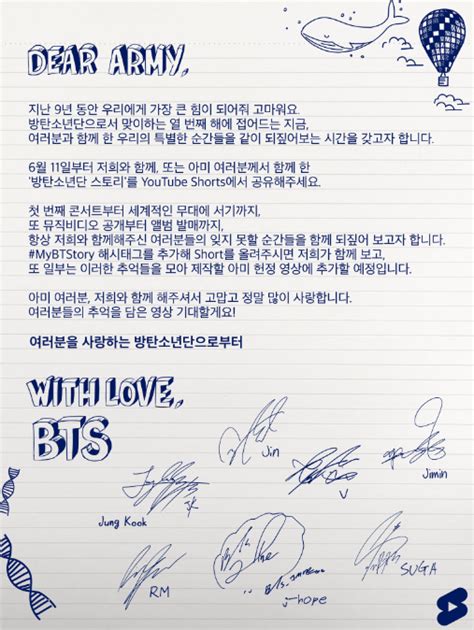 DEAR ARMY,
지난 9년 동안 우리에게 가장 큰 힘이 되어줘 고마워요.
방탄소년단으로서 맞이하는 열 번째 해에 접어드는 지금,
여러분과 함께 한 우리의 특별한 순간들을 같이 되짚어보는 시간을 갖고자 합니다.
6월 11일부터 저희와 함께, 또는 아미 여러분께서 함께 한
'방탄소년단 스토리'를 YouTube Shorts에서 공유해주세요.
첫 번째 콘서트부터 세계적인 무대에 서기까지,
또 뮤직비디오 공개부터 앨범 발매까지,
항상 저희와 함께해주신 여러분들의 잊지 못할 순간들을 함께 되짚어 보고자 합니다.
#MyBTStory 해시태그를 추가해 Short를 올려주시면 저희가 함께 보고,
또 일부는 이러한 추억들을 모아 제작할 아미 헌정 영상에 추가할 예정입니다.
아미 여러분, 저희와 함께 해주셔서 고맙고 정말 많이 사랑합니다.
여러분들의 추억을 담은 영상 기대할게요!
여러분을 사랑하는 방탄소년단으로부터
WITH LOVE,
BTS
Jin
V
Jimin
Jung Kook
RM
j-hope
SUGA